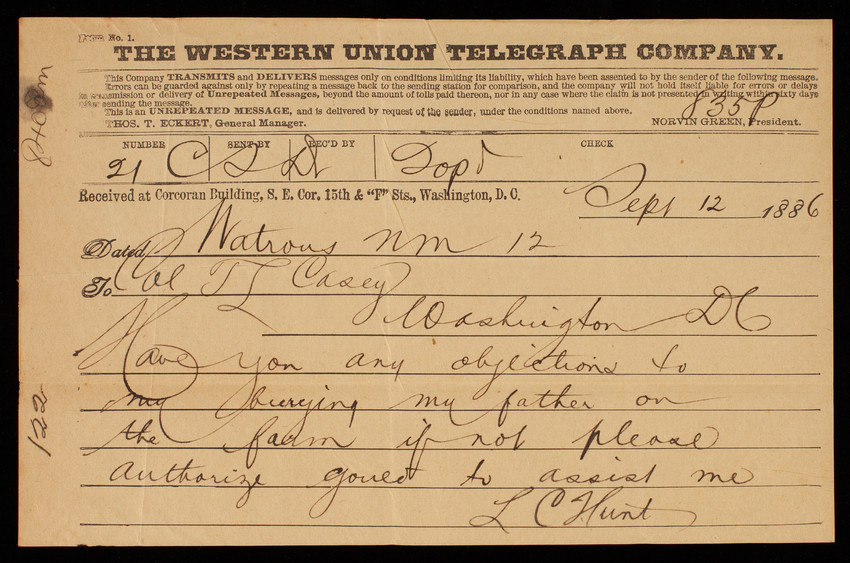 No. 1.
THE WESTERN UNION TELEGRAPH COMPANY.
This Company TRANSMITS and DELIVERS messages only on conditions limiting its liability, which have been assented to by the sender of the following message.
Errors can be guarded against only by repeating a message back to the sending station for comparison, and the company will not hold itself liable for errors or delays
in transmission or delivery of Unrepeated Messages, beyond the amount of tolls paid thereon, nor in any case where the claim is not presented in writing within sixty days
after sending the message.
This is an UNREPEATED MESSAGE, and is delivered by request of the sender, under the conditions named above.
THOS. T. ECKERT, General Manager. NORVIN GREEN, President.
835P
840 pm
NUMBER SENT BY REC'D BY CHECK
21 C
Received at Corcoran Building, S. E. Cor. 15th & "F" Sts., Washington, D. C.
Sept 12 1886
Dated Watrous NM 12
To Col TL Casey
Washington DC
Have you any objections to
my burying my father on
the farm if not please
authorize to assist me
L C Hunt
122